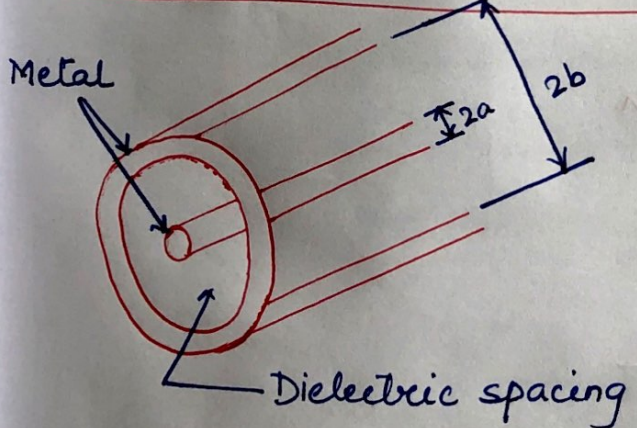 Metal
2b
2a
Dielectric spacing